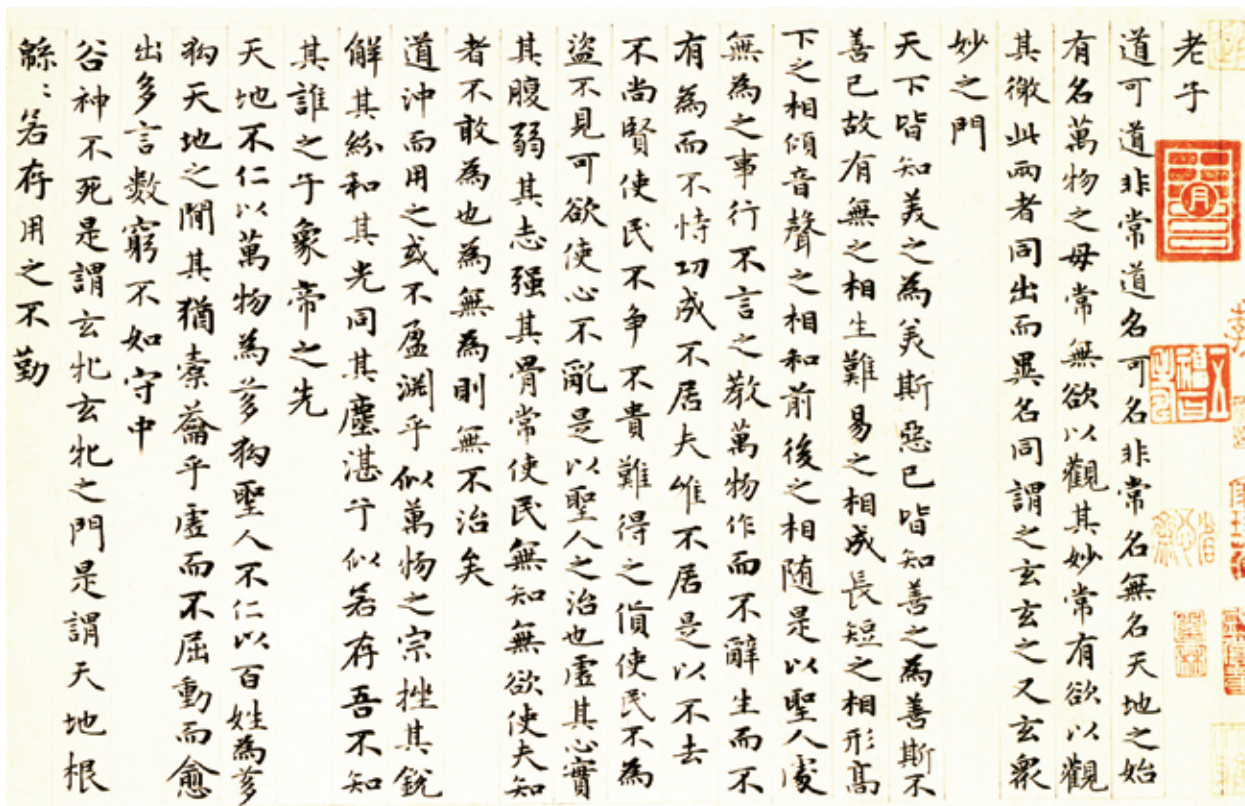 老子
道可道非常道名可名非常名無名天地之始
有名萬物之母常無欲以觀其妙常有欲以觀
其徼此兩者同出而異名同謂之玄玄之又玄衆
妙之門
天下皆知美之為美斯惡已皆知善之為善斯不
善已故有無之相生難易之相成長短之相形高
下之相傾音聲之相和前後之相随是以聖人處
無為之事行不言之教萬物作而不辭生而不
有為而不恃功成不居夫唯不居是以不去
不尚賢使民不争不貴難得之貨使民不為
盜不見可欲使心不亂是以聖人之治也虛其心實
其腹弱其志强其骨常使民無知無欲使夫知
者不敢為也為無為則無不治矣
道沖而用之或不盈淵乎似萬物之宗挫其銳
解其紛和其光同其塵湛兮似若存吾不知
其誰之子象帝之先
天地不仁以萬物為芻狗聖人不仁以百姓為芻
狗天地之間其猶橐籥乎虛而不屈動而愈
出多言數窮不如守中
谷神不死是謂玄牝玄牝之門是謂天地根
緜〻若存用之不勤